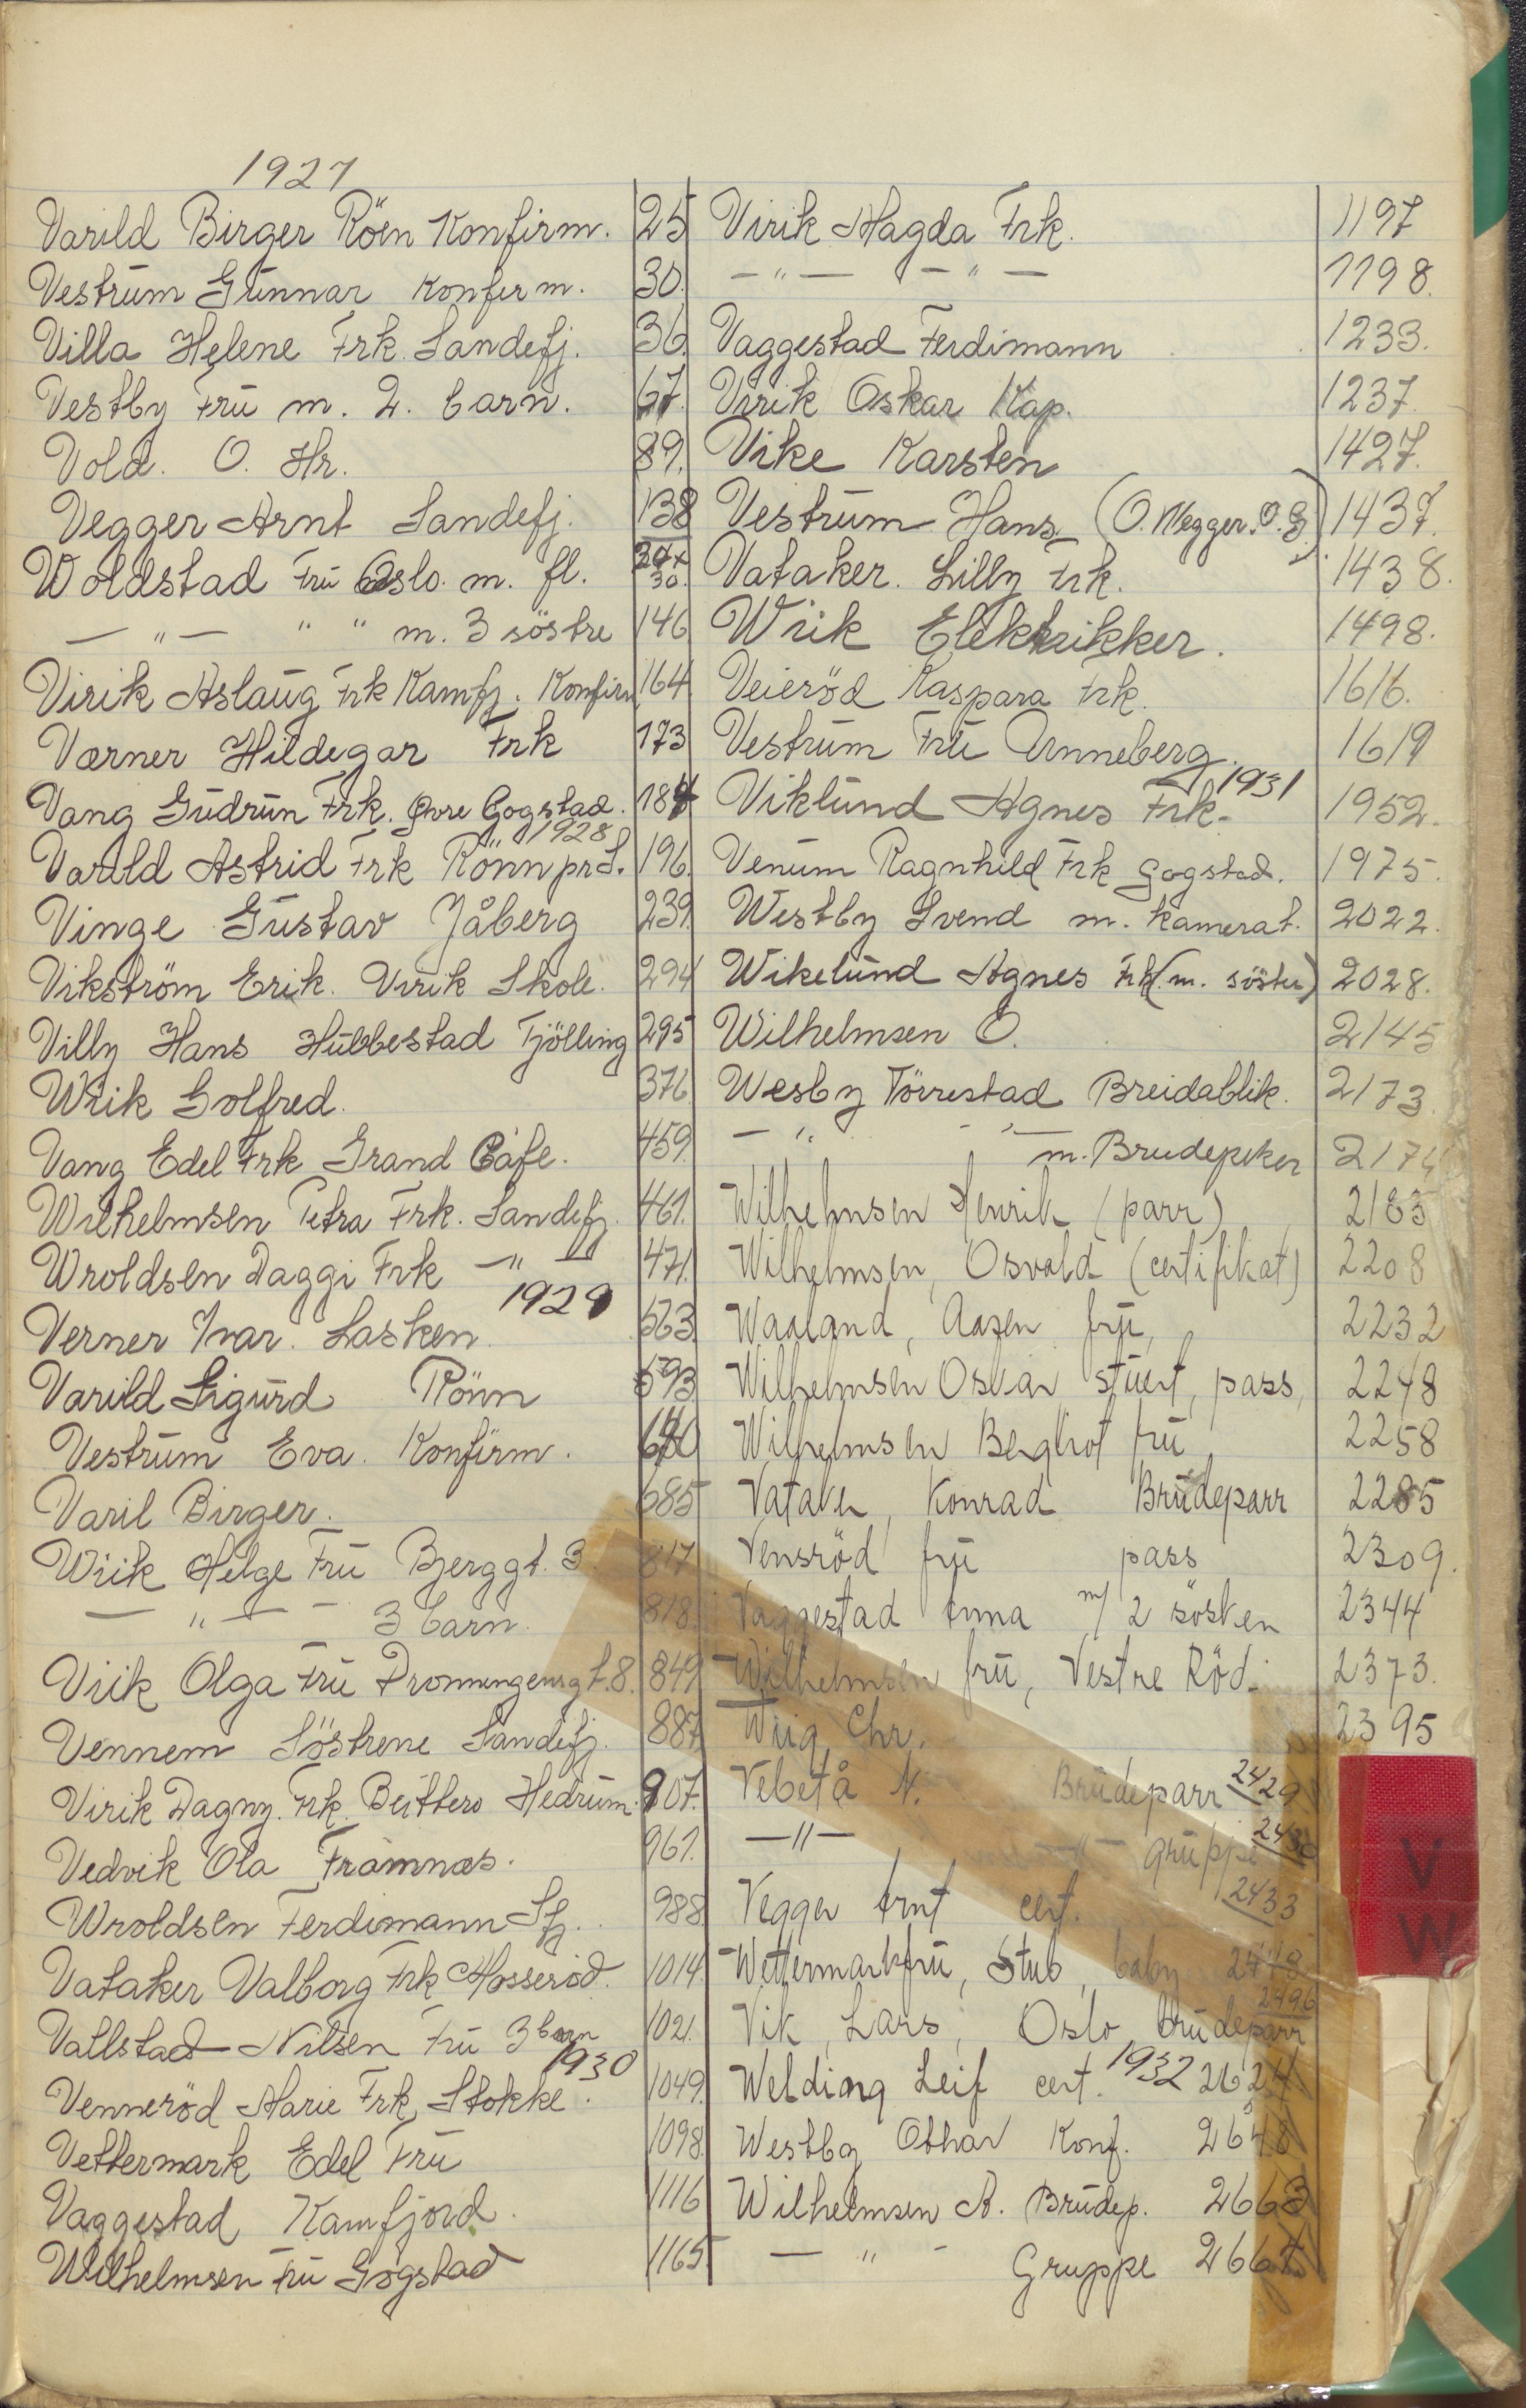 1927
Varild Birger Röen Konfirm. 25
Vestrum Gunnar Konfirm. 30.
Villa Helene Frk. Sandefj. 36.
Vestby Fru m. 2. barn. 67.
Vold. O. Hr. 89.
Vegger Arnt Sandefj. 138
Woldstad Fru Oslo. m. fl. 30.
— " — " " m. 3 söstre 146
Virik Aslaug Frk Kamfj. Konfirm 164
Værner Hildegar Frk 173
Vang Gudrun Frk. Øvre Gogstad. 184
1928
Varild Astrid Frk Rönn pr S. 196.
Vinge Gustav Jåberg 239.
Vikström Erik. Virik Skole. 294
Villy Hans Hubbestad Tjölling 295
Wiik Golfred. 376.
Vang Edel Frk Grand Cafe. 459.
Wilhelmsen Petra Frk. Sandefj. 461.
Wroldsen Daggi Frk — " — 471.
1929
Verner Ivar. Lasken. 563.
Varild Sigurd Rönn 593.
Vestrum Eva. Konfirm.
Varil Birger. 685
Wiik Helge Fru Bjerggt. 3 817
— " — – 3 barn. 818.
Viik Olga Fru Dronningensgt. 8. 849
Vennem Söstrene Sandefj. 887.
Virik Dagny. Frk. Hedrum. 907.
Vedvik Ola Framnæs. 961.
Wroldsen Ferdimann Sfj. 988
Vataker Valborg Frk Mosseröd. 1014.
Vallstad Nilsen Fru 3 barn 1021.
1930
Venneröd Marie Frk, Stokke. 1049.
Vettermark Edel Fru 1098.
Vaggestad Kamfjord. 1116
Wilhelmsen Fru Gogstad 1165.
Virik Magda Frk. 1197
— " — — " — 1198.
Vaggestad Ferdimann 1233.
Virik Oskar Kap. 1237.
Vike Karsten 1427.
Vestrum Hans (O. Wegger. O. G.) 1437.
Vataker. Lilly Frk. 1438.
Wiik Elektrikker. 1498.
Veieröd Kaspara Frk. 1616.
Vestrum Fru Unneberg. 1619
1931
Viklund Agnes Frk. 1952.
Venum Ragnhild Frk Gogstad. 1975.
Westby Svend m. kamerat. 2022.
Wikelund Agnes Frk (m. söster) 2028.
Wilhelmsen O. 2145
Wesby Törrestad Breidablik. 2173.
— " — " — m. Brudepiker 2174
Wilhelmsen Henrik (parr) 2183
Wilhelmsen, Osvald (certifikat) 2208
Waaland, Aasen fru, 2232
Wilhelmsen Oskar stuert, pass, 2248
Wilhelmsen Bergliot fru, 2258
Vataker, Konrad Brudeparr 2285
Vensröd fru pass 2309.
Vaggestad Anna m/ 2 sösken 2344
Wilhelmsen fru, Vestre Röd. 2373.
Wiig Chr. 2395
Vebetå N. Brudeparr 2429
— " — — " — gruppe 2430
Vegger Arnt cert. 2433
Wettermark fru, Stub, baby 2478
2496
Vik, Lars, Oslo, brudeparr
Welding Leif cert. 1932 2624
Westby Othar Konf. 2648
Wilhelmsen A. Brudep. 2663
— " – Gruppe 2664
V
W